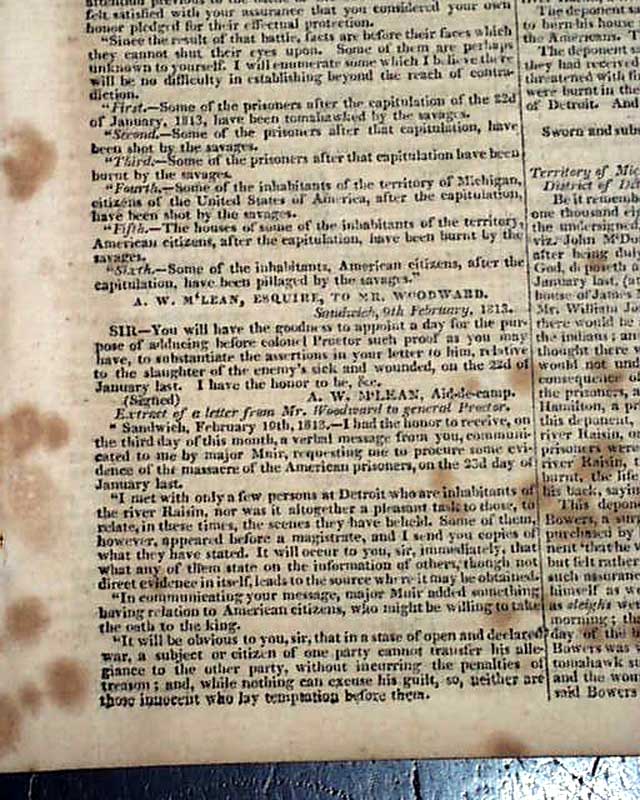 felt satisfied with your assurance that you considered your own
honor pledged for their effectual protection.
"Since the result of that battle, facts are before their faces which
they cannot shut their eyes upon. Some of them are perhaps
unknown to yourself. I will enumerate some which I believe there
will be no difficulty in establishing beyond the reach of contra-
diction.
"First.—Some of the prisoners after the capitulation of the 22d
of January, 1813, have been tomahawked by the savages.
"Second.—Some of the prisoners after that capitulation, have
been shot by the savages.
"Third.—Some of the prisoners after that capitulation have been
burnt by the savages.
"Fourth.—Some of the inhabitants of the territory of Michigan,
citizens of the United States of America, after the capitulation,
have been shot by the savages.
"Fifth.—The houses of some of the inhabitants of the territory,
American citizens, after the capitulation, have been burnt by the
savages.
"Sixth.—Some of the inhabitants, American citizens, after the
capitulation, have been pillaged by the savages."
A. W. M'LEAN, ESQUIRE, TO MR. WOODWARD.
Sandwich, 9th February, 1813.
SIR—You will have the goodness to appoint a day for the pur-
pose of adducing before colonel Proctor such proof as you may
have, to substantiate the assertions in your letter to him, relative
to the slaughter of the enemy's sick and wounded, on the 22d of
January last. I have the honor to be, &c.
(Signed) A. W. M'LEAN, Aid-de-camp.
Extract of a letter from Mr. Woodward to general Proctor.
" Sandwich, February 10th, 1813.—I had the honor to receive, on
the third day of this month, a verbal message from you, communi-
cated to me by major Muir, requesting me to procure some evi-
dence of the massacre of the American prisoners, on the 23d day of
January last.
"I met with only a few persons at Detroit who are inhabitants of
the river Raisin, nor was it altogether a pleasant task to those, to
relate, in these times, the scenes they have beheld. Some of them,
however, appeared before a magistrate, and I send you copies of
what they have stated. It will occur to you, sir, immediately, that
what any of them state on the information of others, though not
direct evidence in itself, leads to the source where it may be obtained.
"In communicating your message, major Muir added something
having relation to American citizens, who might be willing to take
the oath to the king.
"It will be obvious to you, sir, that in a state of open and declared
war, a subject or citizen of one party cannot transfer his alle-
giance to the other party, without incurring the penalties of
treason; and, while nothing can excuse his guilt, so, neither are
those innocent who lay temptation before them.
The deponent s
to burn his house
the Americans. T
The deponent s
they had received
threatened with fi
were burnt in the
of Detroit. And
Sworn and subs
Territory of Mic
District of De
Be it remembe
one thousand ei
the undersigned,
viz. John M'Do
after being duly
God, deposeth a
January last, (at
house of James
Mr. William Jo
there would be
the indians; an
thought there w
would not und
consequence of
the prisoners, a
Hamilton, a pr
this deponent,
river Raisin, on
prisoners were
river Raisin, t
burnt, the life
his back, sayin
This depone
Bowers, a sur
purchased by
nent 'that he w
but felt rather
such assuran
himself as we
as sleighs wer
morning; tha
day of the
Bowers was
tomahawk s
and the wou
said Bowers